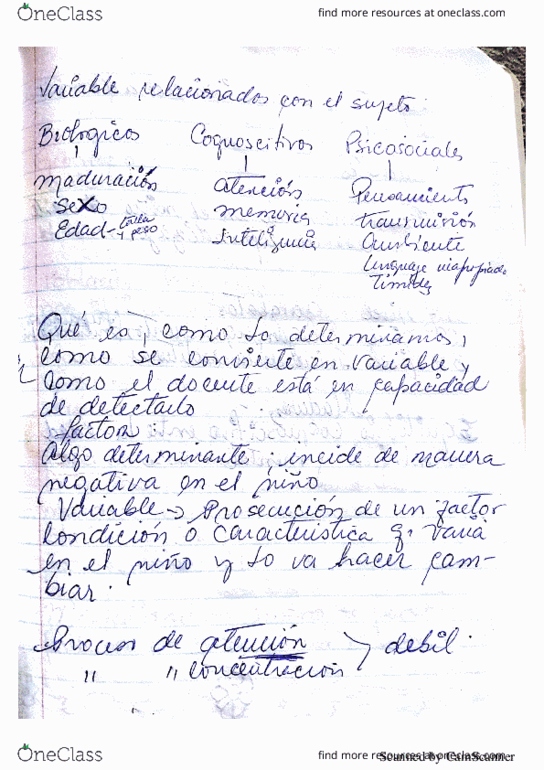 OneClass
find more resources at oneclass.com
Variable relacionados con el sujeto:
Biologicos Cognoscitivos Psicosociales
maduración atención Pensamiento
Sexo memoria transmisión
Edad - talla y peso Inteligencia Ambiente
Lenguaje inapropiado
Timidez
Qué es, como lo determinamos,
como se convierte en variable y
como el docente está en capacidad
de detectarlo
factor
Algo determinante, incide de manera
negativa en el niño
Variable → Prosecución de un factor
condición o caracteristica q. varía
en el niño y lo va hacer cam-
biar.
Proceso de atención debil.
" " concentración
OneClass
find more resources at oneclass.com
Scanned by CamScanner